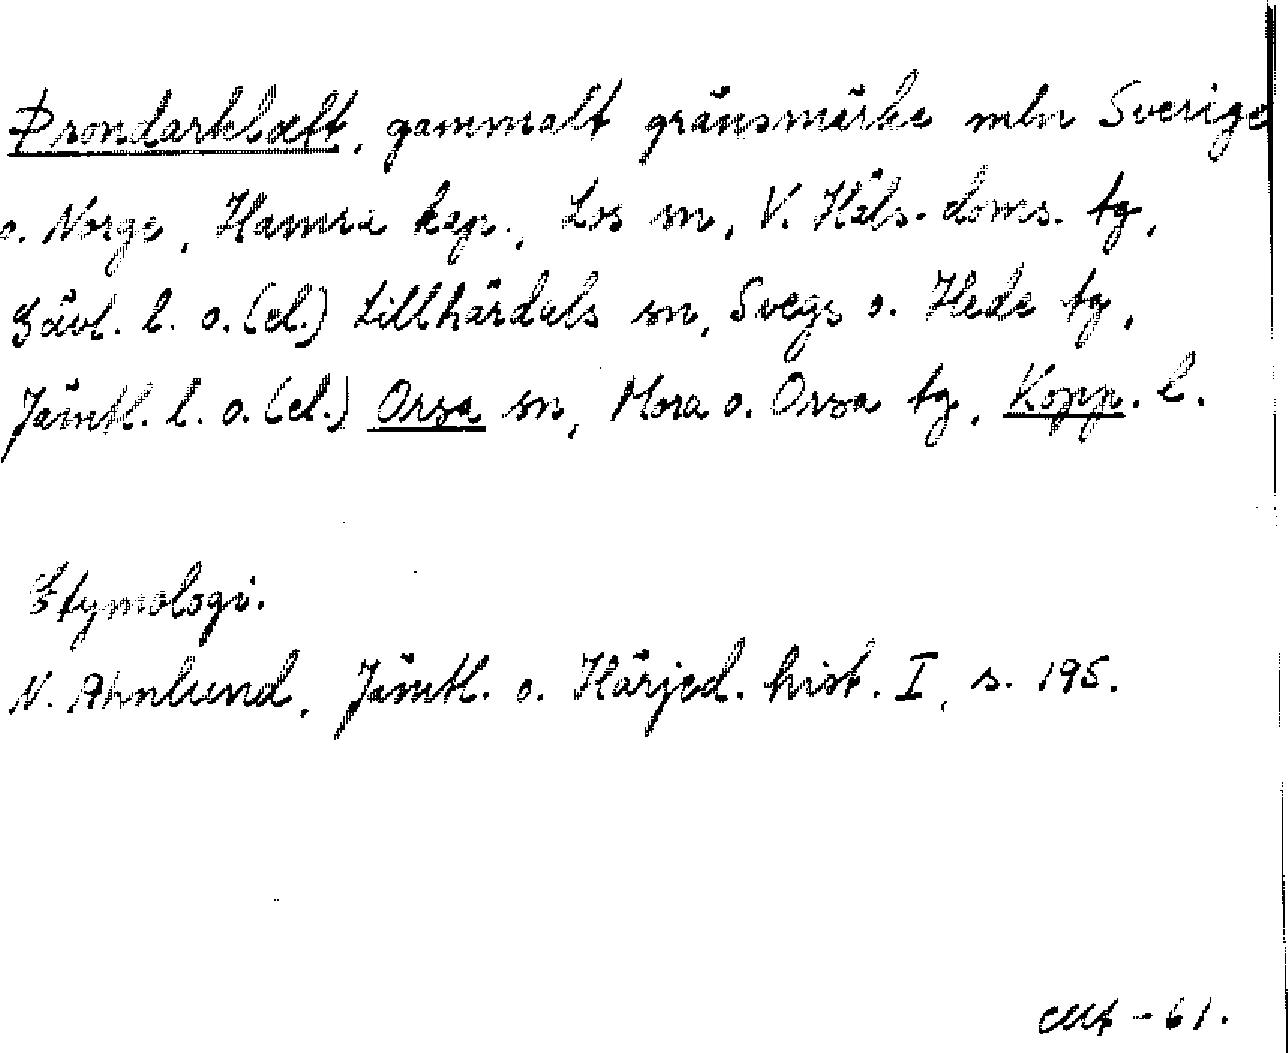 Þrondarklæft, gammalt gränsmärke mln Sverige
o. Norge, Hamra kap., Los sn, V. Häls. doms. tg,
Gävl. l. o. (el.) Lillhärdals sn, Svegs o. Hede tg,
Jämtl. l. o. (el.) Orsa sn, Mora o. Orsa tg, Kopp. l.
Etymologi.
N. Ahnlund, Jämtl. o. Härjed. hist. I, s. 195.
-61.